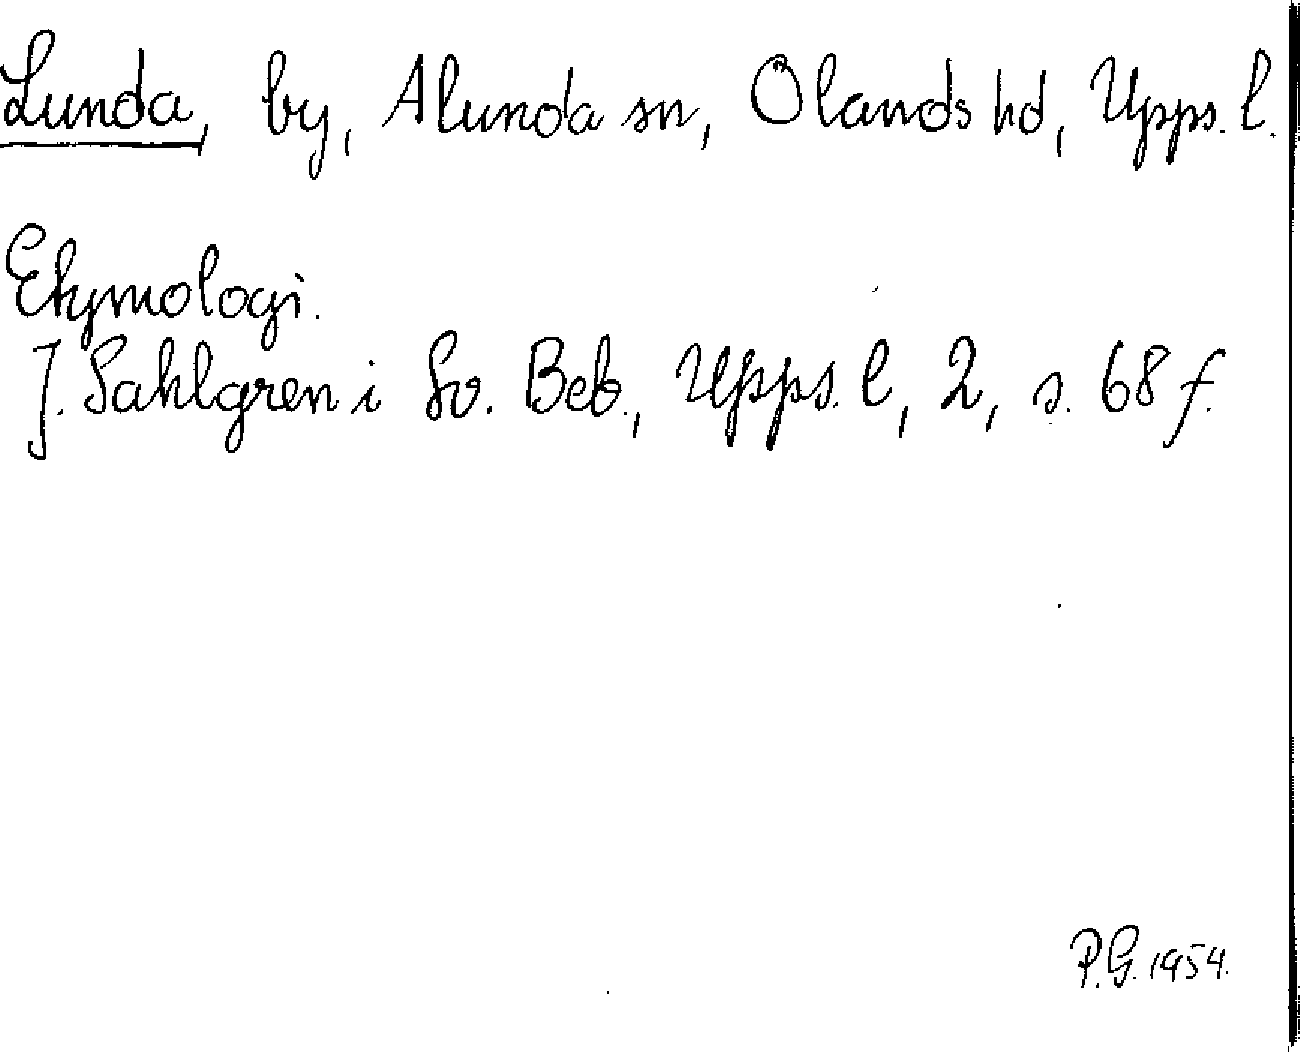 Lunda, by, Alunda sn, Olands hd, Upps. l.
Etymologi.
J. Sahlgren i Sv. Beb., Upps. l, 2, s. 68 f.
P.G. 1954.